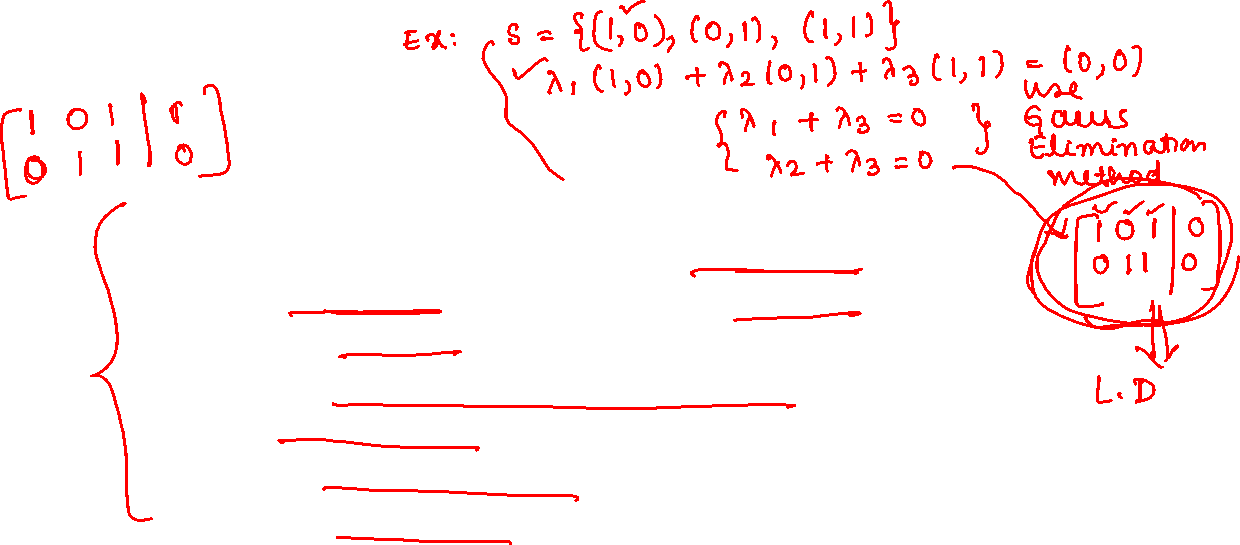 Ex: S = {(1,0), (0,1), (1,1)}
λ1 (1,0) + λ2 (0,1) + λ3 (1,1) = (0,0)
{ λ1 + λ3 = 0
λ2 + λ3 = 0 }
use
Gauss
Elimination
method
[1 0 1 | 0
0 1 1 | 0]
[1 0 1 | 0
0 1 1 | 0]
L.D